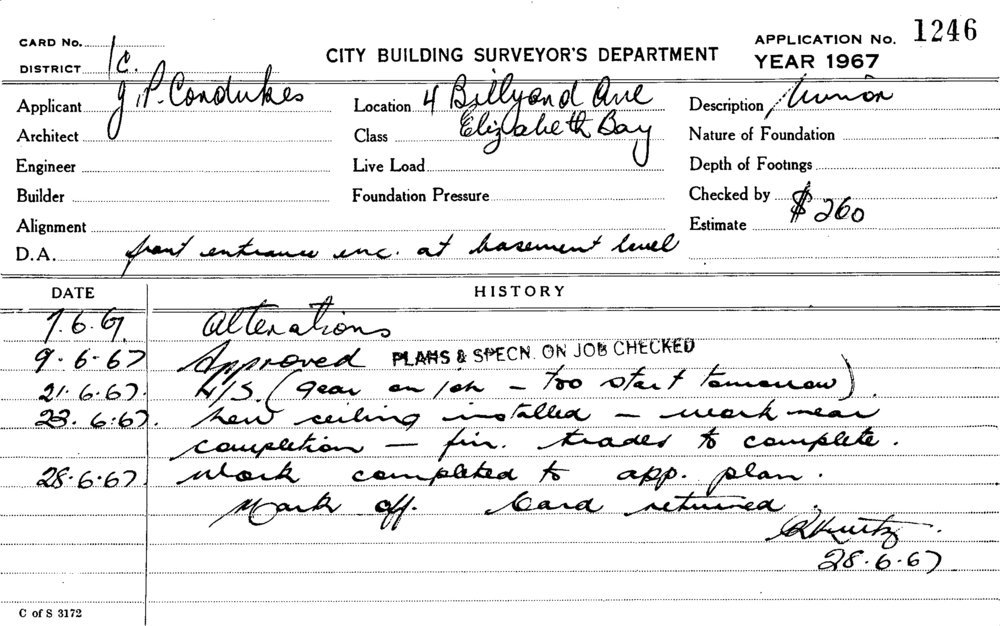 CARD No.
DISTRICT 1C.
CITY BUILDING SURVEYOR'S DEPARTMENT
APPLICATION No. 1246
YEAR 1967
Applicant J. P. Condukes
Location 4 Billyand Ave
Description Minor
Architect
Class Elizabeth Bay
Nature of Foundation
Engineer
Live Load
Depth of Footings
Builder
Foundation Pressure
Checked by
Alignment
Estimate $260
D.A. front entrance inc. at basement level
DATE HISTORY
7.6.67 Alterations
9.6.67 Approved PLANS & SPECN. ON JOB CHECKED
21.6.67. N/S. (gear on job - too start tomorrow)
23.6.67. New ceiling installed - work near
completion - fin. trades to complete.
28.6.67. Work completed to app. plan.
Mark off. Card returned.
28.6.67.
C of S 3172